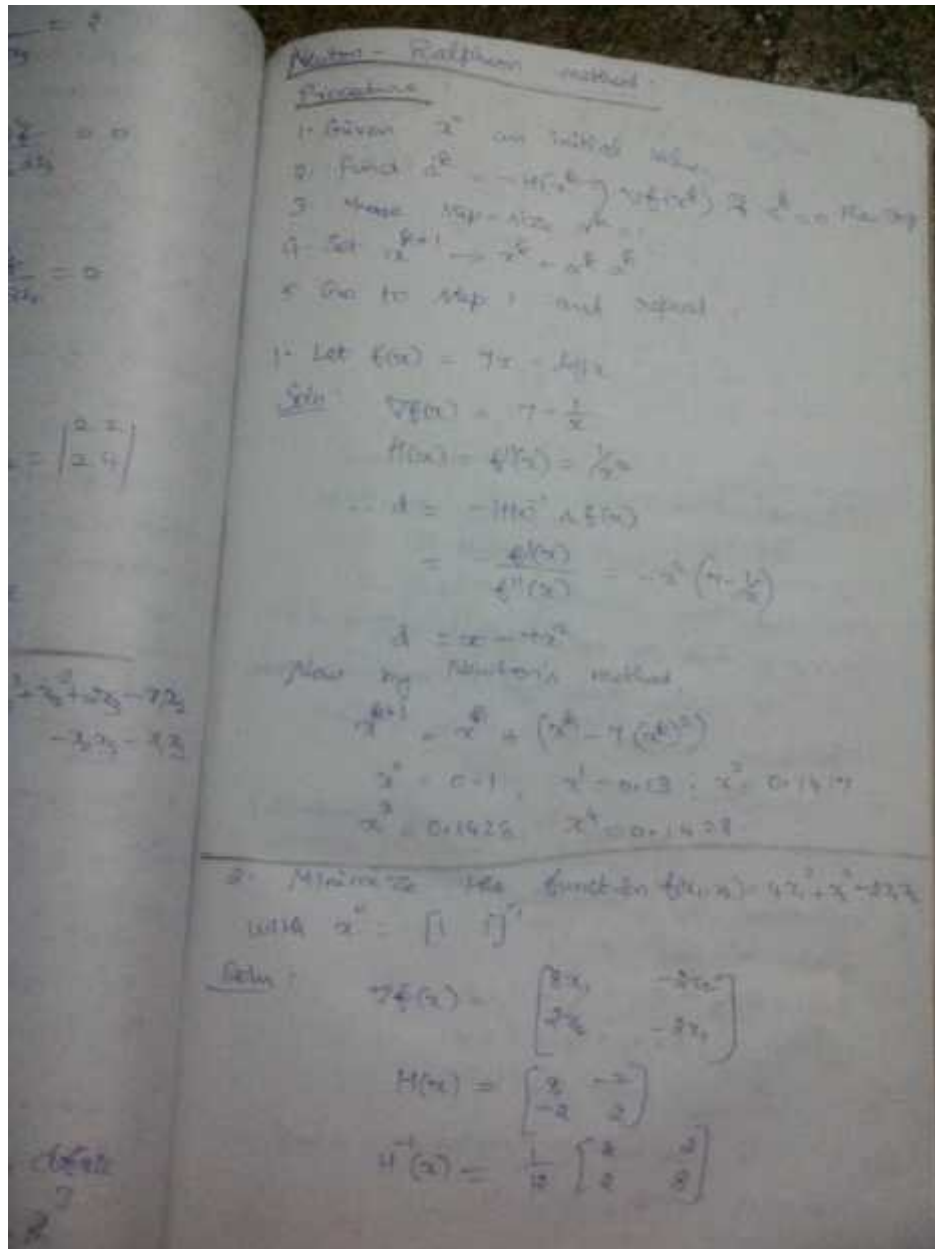 = 2
= 0
= 0
= |2 2
2 4|
+ x₂² + 2x₃ - x₁x₂
- x₂x₃ - x₁x₃
Newton - Ralphson method.
Procedure :
1. Given x⁰ an initial value.
2. Find d^k = -H(x^k)⁻¹ ∇f(x^k) If d^k = 0 then stop
3. step-size α^k = 1
4. Set x^{k+1} → x^k + α^k d^k
5. Go to step 1 and repeat.
1. Let f(x) = 7x - log x
Soln: ∇f(x) = 7 - 1/x
H(x) = f''(x) = 1/x²
∴ d = -H(x)⁻¹ ∇f(x)
= - f'(x)/f''(x) = -x² (7 - 1/x)
d = x - 7x²
Now by Newton's method,
x^{k+1} = x^k + (x^k - 7(x^k)²)
x⁰ = 0.1, x¹ = 0.13, x² = 0.1417
x³ = 0.1428 x⁴ = 0.1428
2. Minimize the function f(x₁, x₂) = 4x₁² + x₂² - 2x₁x₂
with x⁰ = [1 1]ᵀ
Soln: ∇f(x) = [8x₁ -2x₂
2x₂ -2x₁]
H(x) = [8 -2
-2 2]
H⁻¹(x) = 1/12 [2 2
2 8]